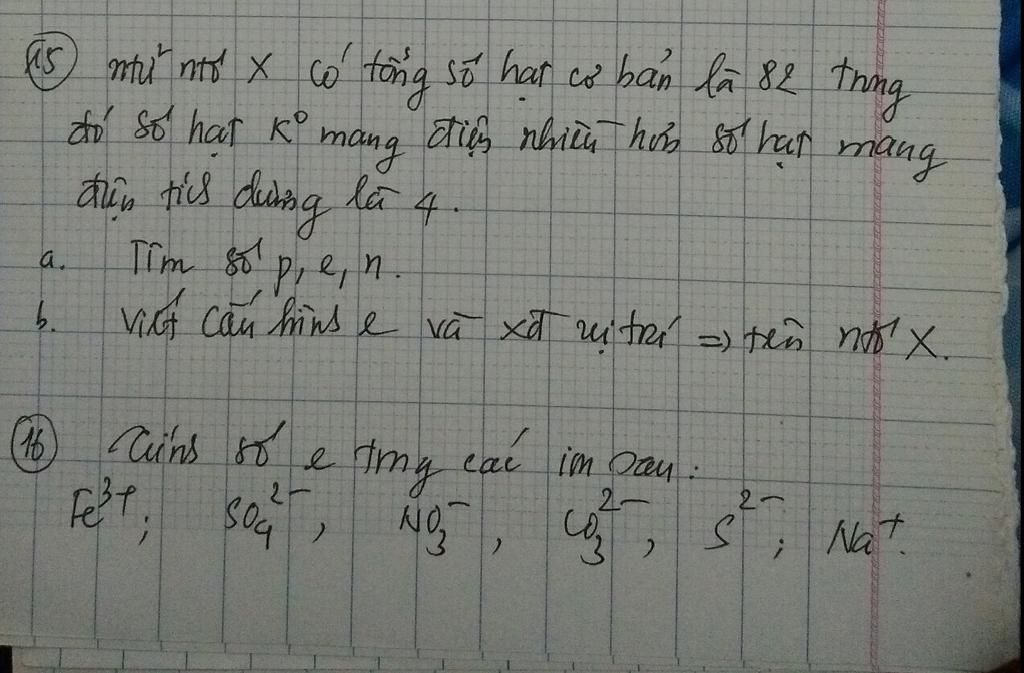 15 ntử ntố X có tổng số hạt cơ bản là 82 trong
đó số hạt K° mang điện nhiều hơn số hạt mang
điện tích dương là 4.
a. Tìm số p, e, n.
b. Viết cấu hình e và xđ vị trí => tên ntố X.
16 Tính số e trong các ion sau:
Fe³⁺; SO₄²⁻, NO₃⁻, CO₃²⁻, S²⁻; Na⁺.